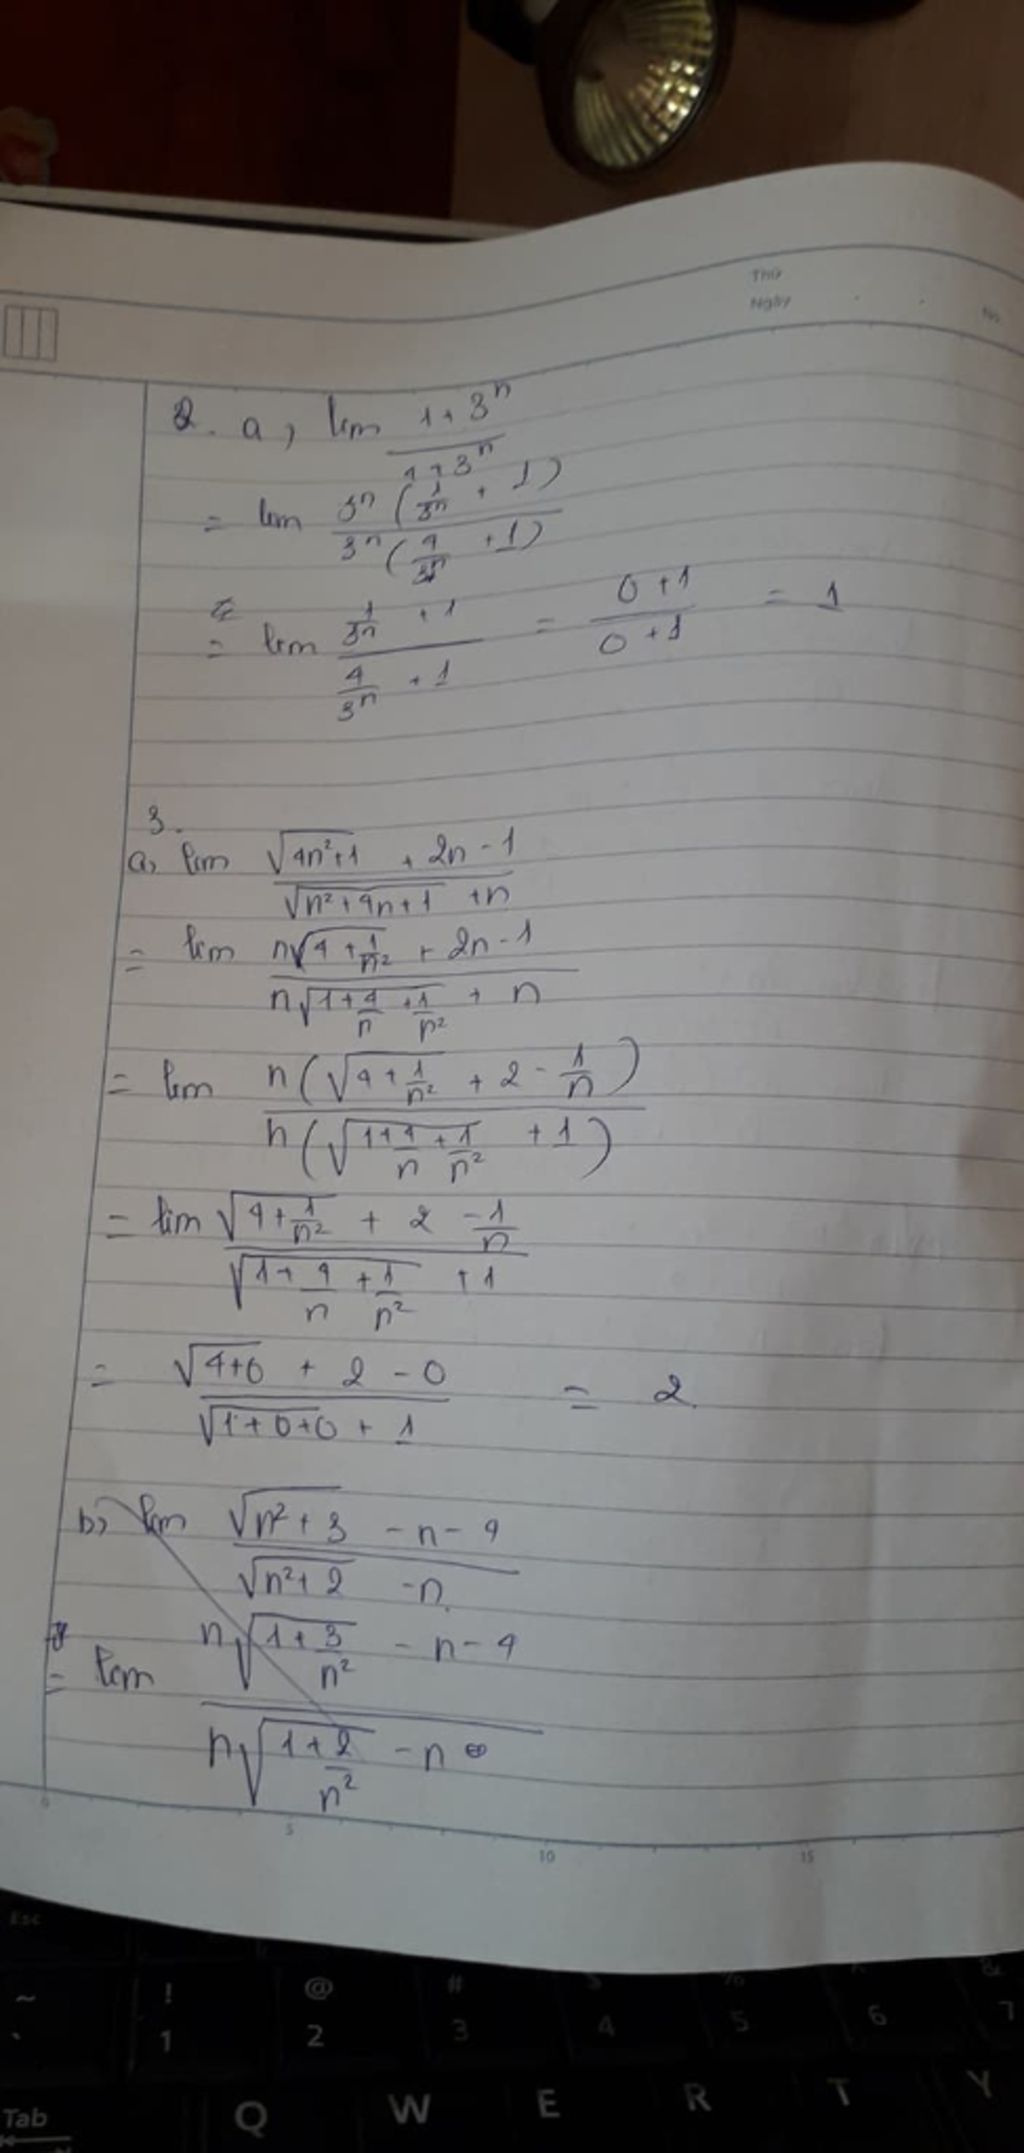 Thứ
Ngày
No.
2. a, lim (1+3ⁿ)/(4+3ⁿ)
= lim (3ⁿ(1/3ⁿ + 1))/(3ⁿ(4/3ⁿ + 1))
= lim (1/3ⁿ + 1)/(4/3ⁿ + 1) = (0+1)/(0+1) = 1
3.
a, lim (√(4n²+1) + 2n - 1)/(√(n²+4n+1) + n)
= lim (n√(4+1/n²) + 2n - 1)/(n√(1+4/n+1/n²) + n)
= lim (n(√(4+1/n²) + 2 - 1/n))/(n(√(1+4/n+1/n²) + 1))
= lim (√(4+1/n²) + 2 - 1/n)/(√(1+4/n+1/n²) + 1)
= (√(4+0) + 2 - 0)/(√(1+0+0) + 1) = 2
b, lim (√(n²+3) - n - 4)/(√(n²+2) - n)
= lim (n√(1+3/n²) - n - 4)/(n√(1+2/n²) - n)
0 5 10 15
Esc
~ ! @ # $ % ^ &
` 1 2 3 4 5 6 7
Tab Q W E R T Y